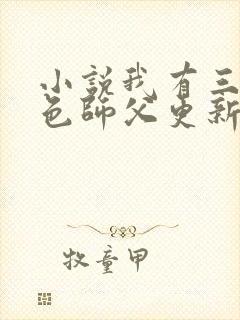 小說我有三
色師父更新
牧童甲